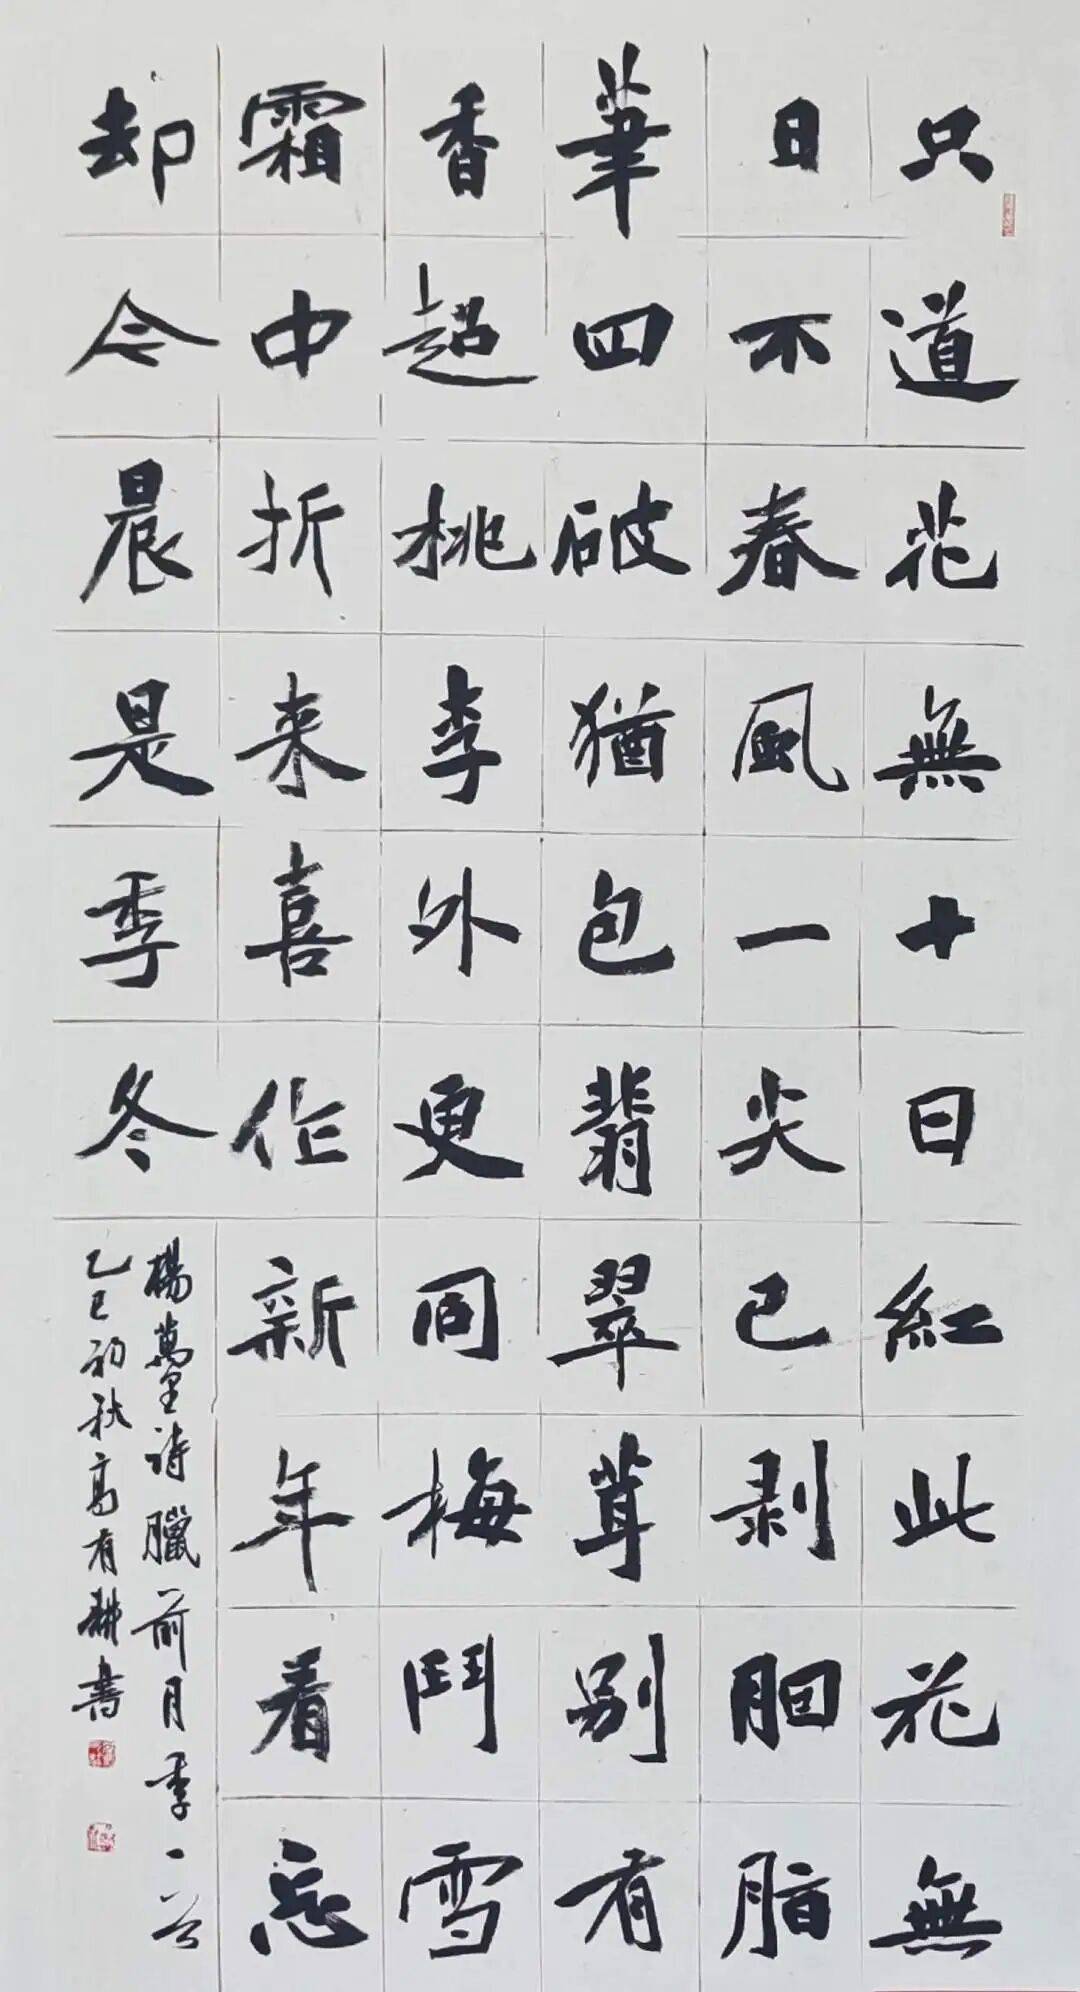 只道花無十日紅此花無
日不春風一尖已剥胭脂
筆四破猶包翡翠茸别有
香超桃李外更同梅鬥雪
霜中折来喜作新年看忘
却今晨是季冬
楊萬里詩臘前月季一首
乙巳初秋高有耕書